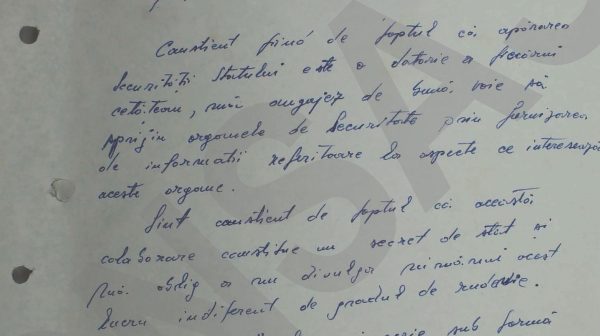 Conștient fiind de faptul că apărarea
Securității Statului este o datorie a fiecărui
cetățean, mă angajez de bună voie să
sprijin organele de Securitate prin furnizarea
de informații referitoare la aspecte ce interesează
aceste organe.
Sînt conștient de faptul că această
colaborare constitue un secret de stat și
mă oblig a nu divulga nimănui acest
lucru indiferent de gradul de rudenie.
sub formă